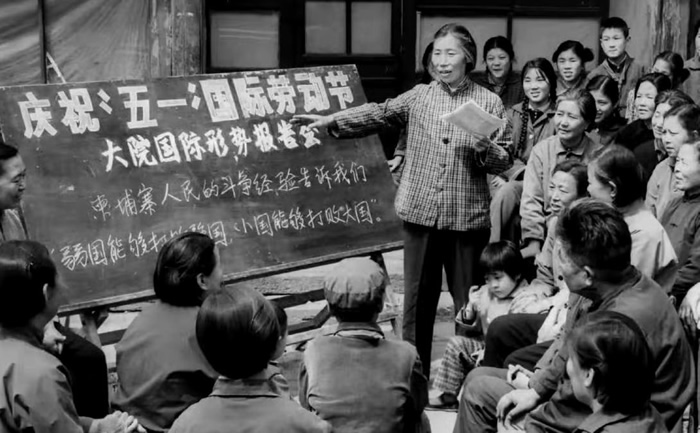 庆祝“五一”国际劳动节
大院国际形势报告会
柬埔寨人民的斗争经验告诉我们
“弱国能够打败强国、小国能够打败大国”。